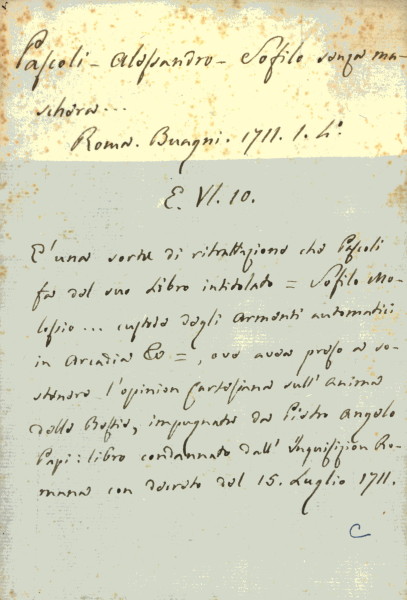 Pascoli - Alessandro - Sofilo senza ma-
schera...
Roma. Buagni. 1711. 1. 4.º
E. VI. 10.
E' una sorta di ritrattazione che Pascoli
fa del suo Libro intitolato = Sofilo Mo-
lossio... custode degli Armenti automatici
in Arcadia &c =, ove avea preso a so-
stenere l'opinion Cartesiana sull' anima
delle Bestie, impugnata da Pietro Angelo
Papi: libro condannato dall' Inquisizion Ro-
mana con decreto del 15. Luglio 1711.
C